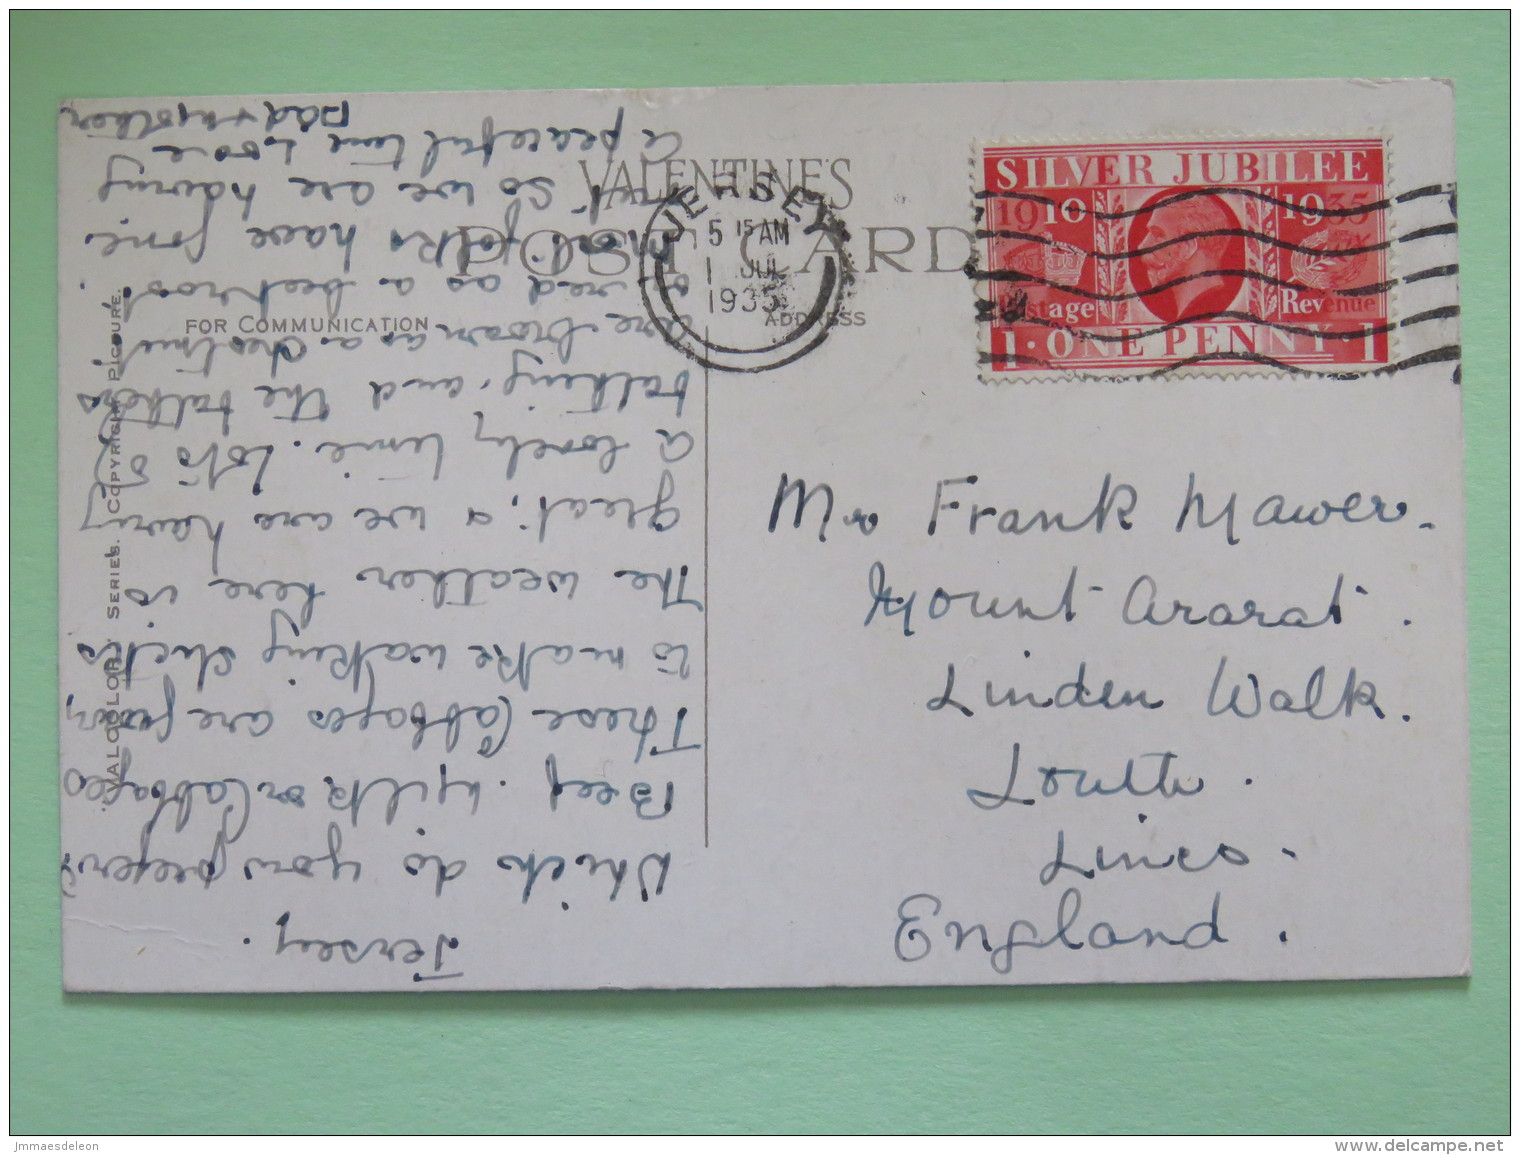 VALENTINE'S
POST CARD
FOR COMMUNICATION
ADDRESS
JERSEY
5 15 AM
1 JUL
1935
SILVER JUBILEE
1910 1935
Postage Revenue
1 · ONE PENNY · 1
Mr Frank Mawer.
Mount Ararat.
Linden Walk.
Louth.
Lincs.
England.
Jersey.
Which do you prefer?
Beef. Milk or Cabbages
These Cabbages are
to make walking sticks
The weather here is
great, & we are having
a lovely time. Lots of
talking, and the talkers
are brown as a chestnut,
or red as a beetroot.
Most folks have gone
out so we are having
a peaceful time. Love
Dad & Mother
"VALCOLOR" SERIES. COPYRIGHT PICTURE.
jmmaesdeleon
delcampe.net